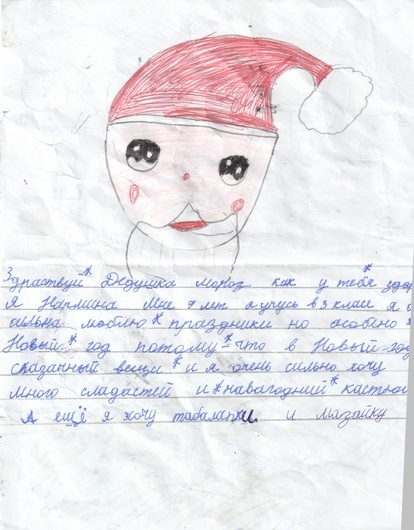 Здраствуй * Дедушка мороз как у тебя *
Я Нармина мне 9 лет я учусь в 3 класе я
сильна люблю * праздники но особино
Новый * год потому что в Новый год
сказанный вещи * и я очень сильно хочу
много сладастей и * навагодний * кастюм
А ещё я хочу табалапки. и мазайку